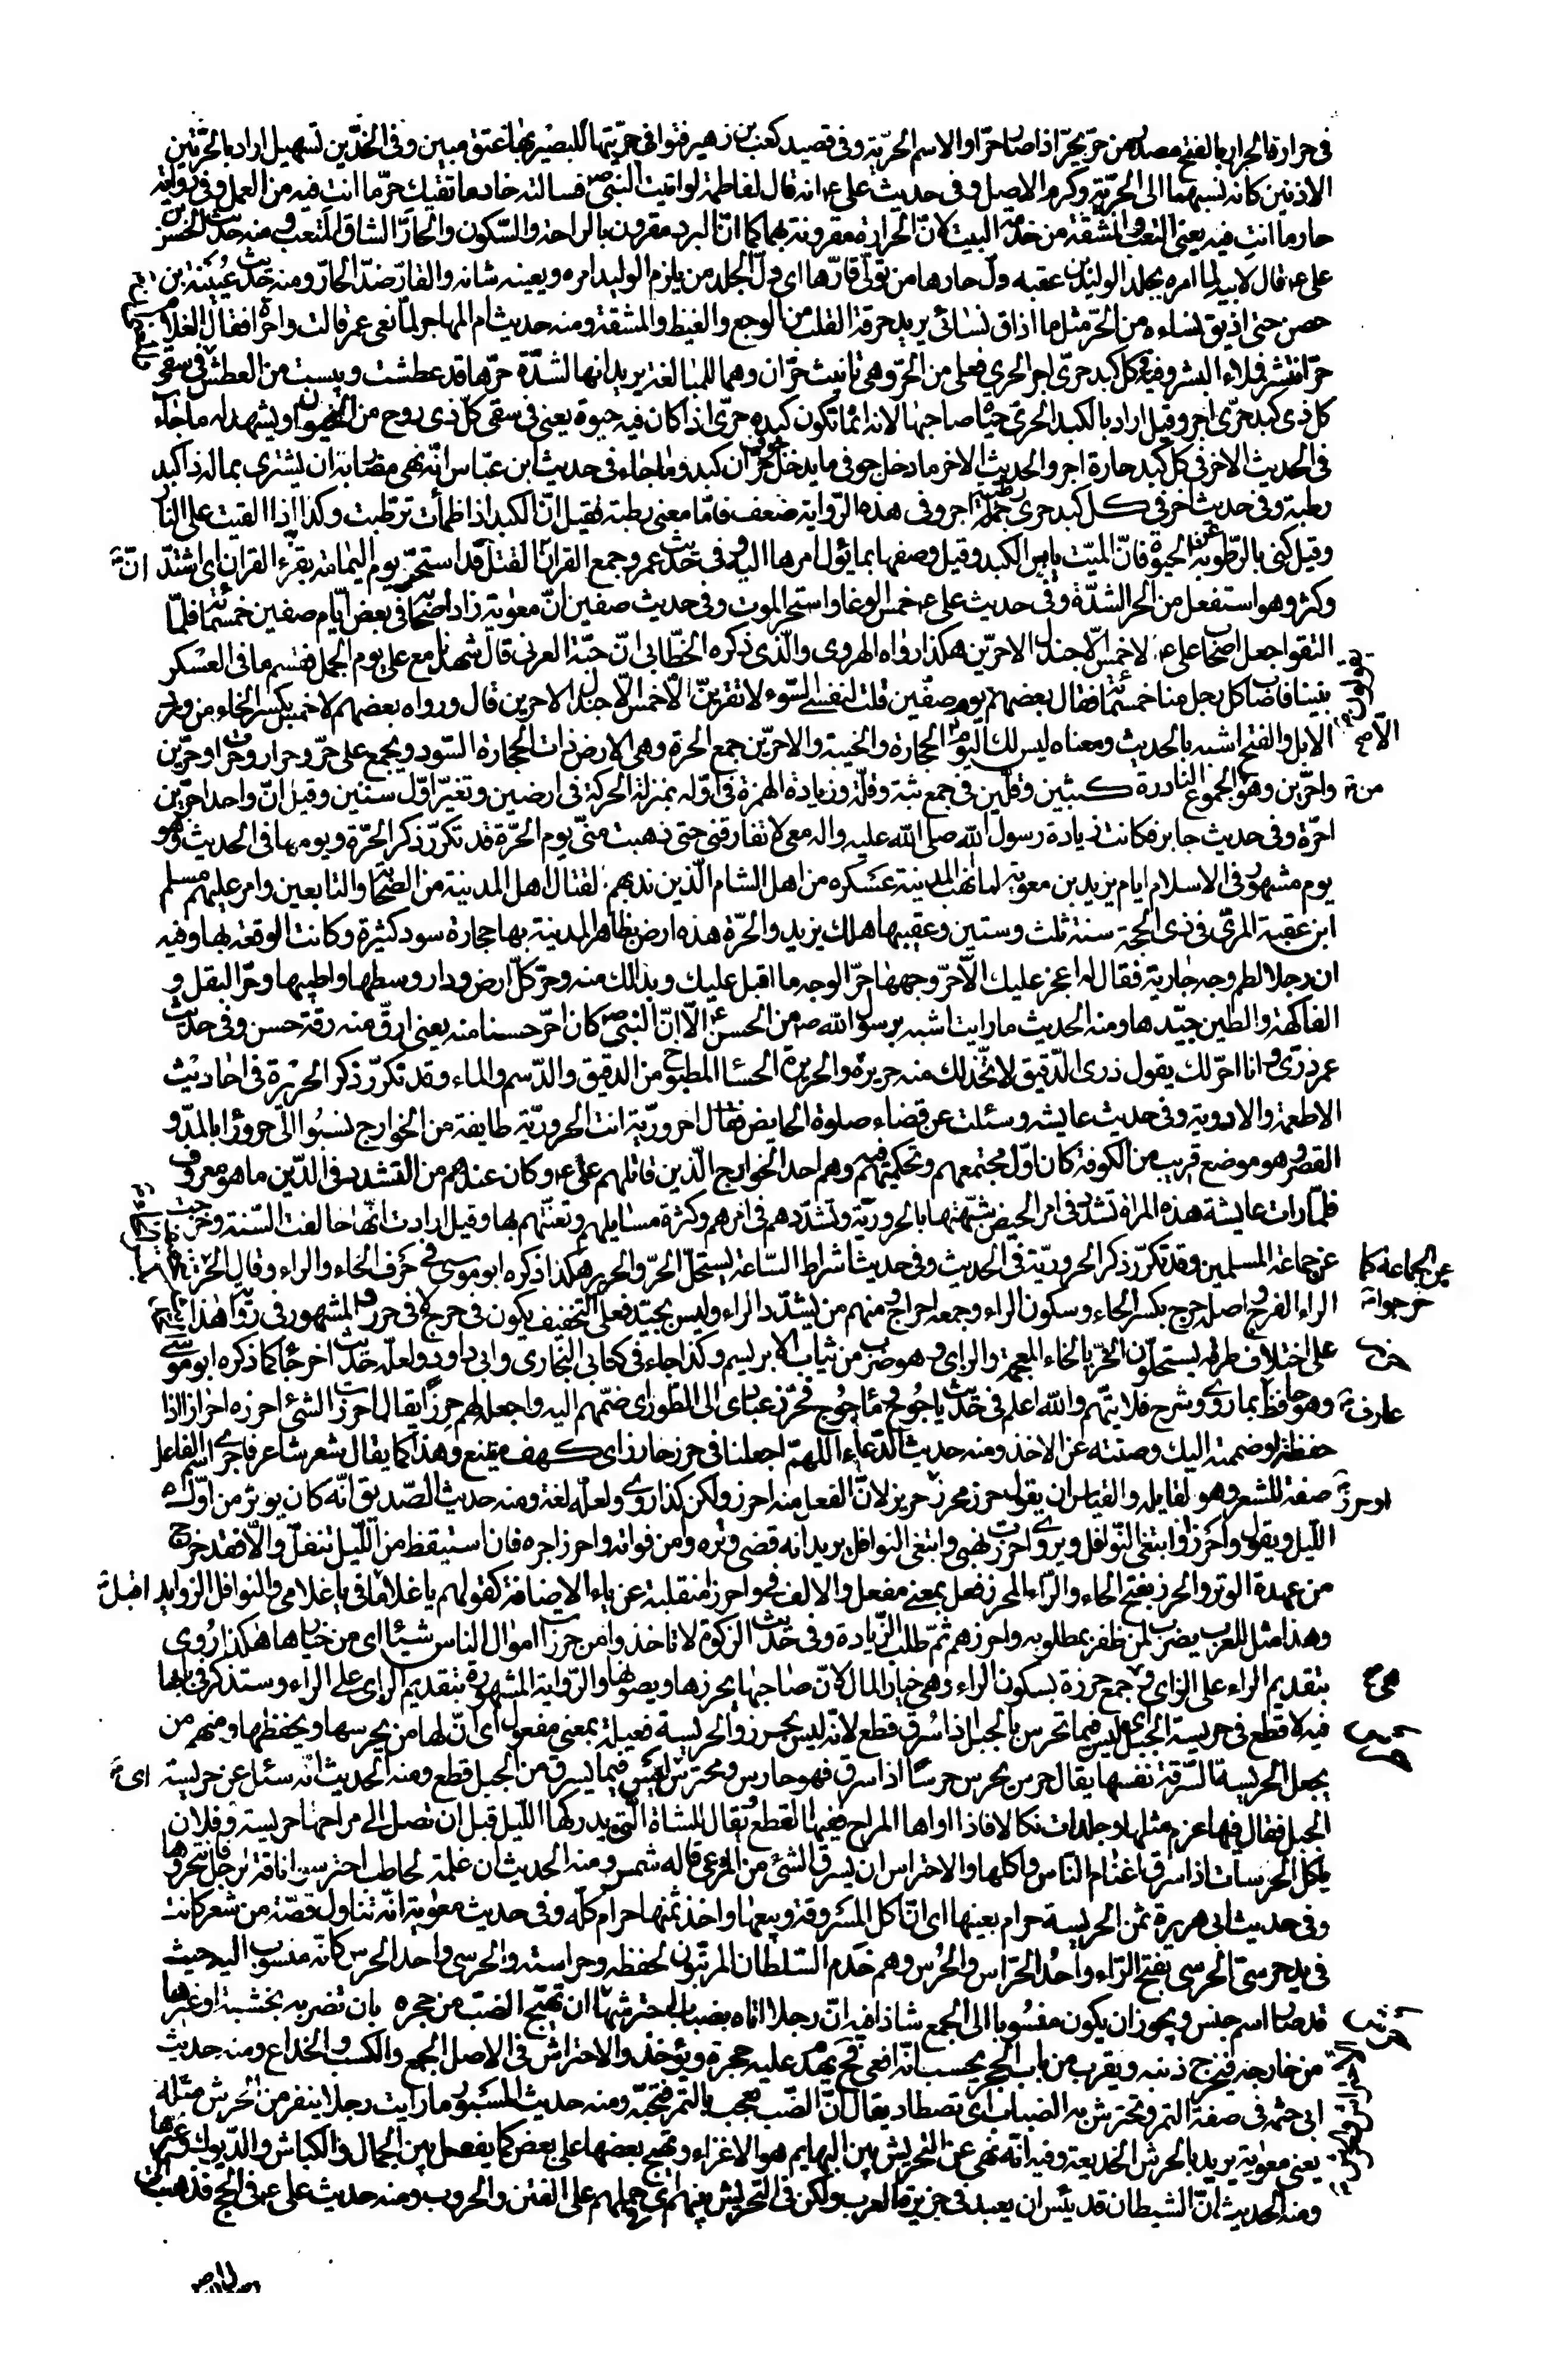 في حرارة الحرار بالفتح مصدر من حرّ يحرّ اذا صار حرّا والاسم الحرّية وفي قصيد كعب بن زهير قنوا في حرّيتها للبصير بها عتق مبين وفي الخدّين تسهيل اراد بالحرّتين
الاذنين كانه نسبهما الى الحرّية وكرم الاصل وفي حديث علي ع انه قال لفاطمة لو اتيت النبي ص فسالته خادما تقيك حرّ ما انت فيه من العمل وفي رواية
حار ما انت فيه يعني التعب والمشقة من خدمة البيت لانّ الحرارة مقرونة بهما كما انّ البرد مقرون بالراحة والسّكون والحارّ الشاق المتعب ومنه حديث الحسن بن
علي ع قال لابيه لما امره بجلد الوليد بن عقبه ولّ حارها من تولّى قارّها اي ولّ الجلد من يلزم الوليد امره ويعينه شانه والقارّ ضدّ الحارّ ومنه حديث عيينة بن
حصن حتى اذيق نساءه من الحرّ مثل ما اذاق نسائي يريد حرقة القلب من الوجع والغيظ والمشقة ومنه حديث ام المهاجر لما نعي عمر قالت واحرّاه فقال الغلام
حرّ انتشر فملاء البشر وفيه في كل كبد حرّى اجر الحرّي فعلى من الحرّ وهي تانيث حرّان وهما للمبالغة يريد انها لشدّة حرّها قد عطشت ويبست من العطش في سقي
كل ذي كبد حرّى اجر وقيل اراد بالكبد الحرّى حيوة صاحبها لانه انما تكون كبده حرّى اذا كان فيه حيوة يعني في سقي كل ذي روح من الحيوان ويشهد له ما جاء
في الحديث الاخر في كل كبد حارة اجر والحديث الاخر ما دخل جوفي ما يدخل جوف حرّان كبد وما جاء في حديث ابن عبّاس انّه نهى مضاربه ان يشتري بماله ذا كبد
رطبة وفي حديث اخر في كل كبد حرى رطبة اجر وفي هذه الرّواية ضعف فامّا معنى رطبة فقيل انّ الكبد اذا ظمأت ترطّبت وكذا اذا القيت على النار
وقيل كنى بالرّطوبة عن الحيوة فانّ الميّت يابس الكبد وقيل وصفها بما يؤل امرها اليه وفي حديث عمر وجمع القران انّ القتل قد استحرّ يوم اليمامة بقرّاء القران اي اشتدّ
وكثر وهو استفعل من الحرّ الشدّة وفي حديث علي ع حمس الوغا واستحر الموت وفي حديث صفين انّ معوية زاد اصحابه في بعض ايّام صفين خمسمائة فلمّا
التقوا جعل اصحاب علي ع لا خمس الّا جندل الاحرّين هكذا رواه الهروي والّذي ذكره الخطّابي انّ حبّة العرني قال شهدنا مع علي يوم الجمل فقسم ما في العسكر
بيننا فاصاب كل رجل منا خمسمائة فقال بعضهم يوم صفّين قلت لنفسي السّوء لا تفرينّ لا خمس الّا جندل الاحرين قال ورواه بعضهم لا خمس بكسر الخاء من ورد
الابل والفتح اشبه بالحديث ومعناه ليس لك اليوم الّا الحجارة والخيبة والاحرّين جمع الحرة وهي الارض ذات الحجارة السّود ويجمع على حرّ وحرار وحرات وحرّين
واحرّين وهو من الجموع النادرة كثبين وقلّين في جمع ثبة وقلّة وزيادة الهمزة في اوّله بمنزلة الحركة في ارضين وتغيّر اوّل سنتين وقيل انّ واحد احرّين
احرّة وفي حديث جابر فكانت زيادة رسول الله صلى الله عليه واله معي لا تفارقني حتى ذهبت منّي يوم الحرّة قد تكرّر ذكر الحرّة ويومها في الحديث وهو
يوم مشهور في الاسلام ايام يزيد بن معوية لما نهب المدينة عسكره من اهل الشام الّذين ندبهم لقتال اهل المدينة من الصّحابة والتابعين وامر عليهم مسلم
ابن عقبة المرّي في ذي الحجة سنة ثلث وستين وعقيبها هلك يزيد والحرّة هذه ارض بظاهر المدينة بها حجارة سود كثيرة وكانت الوقعة بها وفيه
ان رجلا لطم وجه جارية فقال له اعجز عليك الّا حرّ وجهها حرّ الوجه ما اقبل عليك وبدا لك منه وحرّ كلّ ارض ودار وسطها واطيبها وحرّ البقل و
الفاكهة والطين جيّدها ومنه الحديث ما رايت اشبه برسول الله ص من الحسن ع الّا انّ النبي ص كان احرّ حسنا منه يعني ارقّ منه رقة حسن وفي حديث
عمر ذرّي وانا احرّ لك يقول ذري الدّقيق لاتّخذ لك منه حريرة والحريرة الحسا المطبوخ من الدقيق والدّسم والماء وقد تكرّر ذكر الحريرة في احاديث
الاطعمة والادوية وفي حديث عايشة وسئلت عن قضاء صلوة الحايض فقالت احروريّة انت الحروريّة طايفة من الخوارج نسبوا الى حرورا بالمدّ و
القصر وهو موضع قريب من الكوفة كان اوّل مجتمعهم وتحكيمهم فيه وهم احد الخوارج الّذين قاتلهم علي ع وكان عندهم من التشدد في الدّين ما هو معروف
فلمّا رات عايشة هذه المراة تشدّد في امر الحيض شبّهتها بالحروريّة وتشدّدهم في امرهم وكثرة مسايلهم وتعنّتهم بها وقيل ارادت انّها خالفت السّنة وخرجت
عن جماعة المسلمين وقد تكرّر ذكر الحروريّة في الحديث وفي حديث اشراط السّاعة يستحلّ الحرّ والحرير هكذا ذكره ابو موسى في حرف الحاء والراء وقال الحر بتخفيف
الراء الفرج واصله حرح بكسر الحاء وسكون الراء وجمعه احراح ومنهم من يشدّد الراء وليس بجيّد فعلى التخفيف يكون في حرح لا في حرر والمشهور في رواية هذا
على اختلاف طرقه يستحلّون الخزّ بالخاء المعجمة والزاي وهو ضرب من ثياب الابريسم وكذا جاء في كتابي البخاري وابي داود ولعلّه حديث اخر جاء كما ذكره ابو موسى
وهو حافظ بما روى وشرح فلا يتّهم والله اعلم في حديث ياجوج وماجوج فحرّز عبادي الى الطور اي ضمّهم اليه واجعله لهم حرزا يقال احرزت الشئ احرزه احرازا اذا
حفظته وضممته اليك وصنته عن الاخذ ومنه حديث الدّعاء اللهمّ اجعلنا في حرز حارز اي كهف منيع وهذا كما يقال شعر شاعر فاجرى اسم الفاعل
صفة للشعر وهو لقايله والقياس ان يقول حرز محرز وحرز حريز لانّ الفعل منه احرز ولكن كذا روى ولعلّه لغة ومنه حديث الصّديق انّه كان يوتر من اوّل
اللّيل ويقول واحرزا وابتغي النّوافل ويروى احرزت نهبي وابتغي النوافل يريد انه قضى وتره وامن فواته واحرز اجره فان استيقظ من اللّيل تنفّل والّا فقد خرج
من عهدة الوتر والحرز بفتح الحاء والرّاء المحرز فعل بمعنى مفعل والالف في واحرزا منقلبة عن ياء الاضافة كقولهم يا غلاما في يا غلامي والنوافل الزوايد
وهذا مثل للعرب يضرب لمن ظفر بمطلوبه واحرزه ثمّ طلب الزّيادة وفي حديث الزكوة لا تاخذوا من حرزات اموال الناس شيئا اي من خيارها هكذا روي
بتقديم الراء على الزاي وهي جمع حرزة بسكون الراء وهي خيار المال لانّ صاحبها يحرزها ويصونها والرّواية المشهورة بتقديم الزاي على الراء وستذكر في بابها
فيه لا قطع في حريسة الجبل اي ليس فيما تحرس بالجبل اذا سُرق قطع لانّه ليس بحرز والحريسة فعيلة بمعنى مفعولة اي انّ لها من يحرسها ويحفظها ومنهم من
يجعل الحريسة السّرقة نفسها يقال حرس يحرس حرسا اذا سرق فهو حارس ومحترس اي ليس فيما يسرق من الجبل قطع ومنه الحديث انّه سئل عن حريسة
الجبل فقال فيها غرم مثلها وجلدات نكالا فاذا اواها المراح ففيها القطع ويقال للشاة الّتي يدركها اللّيل قبل ان تصل الى مراحها حريسة وفلان
ياكل الحرسات اذا سرق اغنام النّاس واكلها والاحتراس ان يسرق الشئ من المرعى قاله شمر ومنه الحديث ان غلمة لحاطب احترسوا ناقة لرجل فانتحروها
وفي حديث ابي هريرة ثمن الحريسة حرام بعينها اي انّ اكل المسروقة وبيعها واخذ ثمنها حرام كلّه وفي حديث معوية انّه تناول قصّة من شعر كانت
في يد حرسيّ الحرسي بفتح الرّاء واحد الحرّاس والحرس وهم خدم السّلطان المرتّبون لحفظه وحراسته والحرسي واحد الحرس كانّه منسوب اليه حيث
قد صار اسم جنس ويجوز ان يكون منسوبا الى الجمع شاذا فيه انّ رجلا اتاه بضباب احترشها ان تهيّج الضبّ من جحره بان تضربه بخشبة او غيرها
من خارجه فيخرج ذنبه ويقرب من باب الجحر يحسب انّه افعى فح يهدم عليه جحره ويؤخذ والاحتراش في الاصل الجمع والكسب والخداع ومنه حديث
ابي حثمه في صفة التمر وتحترش به الضباب اي تصطاد يقال انّ الضّب يعجب بالتمر فتحبّه ومنه حديث المسور ما رايت رجلا ينفر من الحرش مثله
يعني معوية يريد بالحرش الخديعة وفيه انّه نهى عن التحريش بين البهايم هو الاغراء وتهيج بعضها على بعض كما يفعل بين الجمال والكباش والدّيوك وغيرها
ومنه الحديث انّ الشيطان قد يئس ان يعبد في جزيرة العرب ولكن في التحريش بينهم اي حملهم على الفتن والحروب ومنه حديث علي ع في الحج فذهبت الى